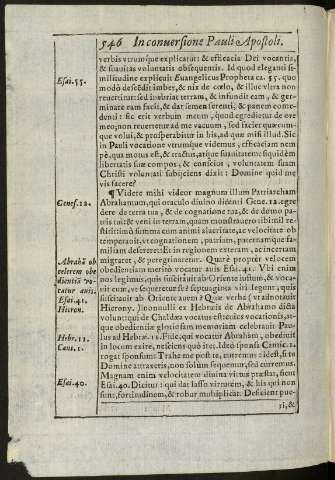 546 In conuersione Pauli Apostoli.
verbis vtrumque explicatur: & efficacia Dei vocantis,
& suauitas voluntatis obsequentis. Id quod eleganti si-
Esai. 55.
militudine explicuit Euangelicus Propheta ca. 55. quo
modò descēdit imber, & nix de cœlo, & illuc vltra non
reuertitur: sed inebriat terram, & infundit eam, & ger-
minare eam facit, & dat semen serenti, & panem come-
denti: sic erit verbum meum, quod egredietur de ore
meo; non reuertetur ad me vacuum, sed faciet quæcum-
que volui, & prosperabitur in his, ad quæ misi illud. Sic
in Pauli vocatione vtrumque videmus, efficaciam nem
pè, qua motus est, & suauitatem: siquidem
libertatis suæ compos, & conscius, voluntatem suam
Christi voluntati subijciens dixit: Domine quid me
vis facere?
¶ Videre mihi videor magnum illum Patriarcham
Genes. 12.
Abrahamum, qui oraculo diuino dicenti Gene. 12. egre
dere de terra tua, & de cognatione tua, & de domo pa-
tris tui: & veni in terram, quam monstrauero tibi: mil
summa cum animi alacritate, ac velocitate ob
temperauit, & cognationem, patriam, paternamque fa-
miliam deserere: Et in regionem exteram, ac incertam
Abrahā ob
celerem obe
dientiā vo-
tatur auis.
Esai. 41.
Hieron.
migraret, & peregrinaretur. Quarè propter velocem
obedientiam meritò vocatur auis Esai. 41. Vbi enim
nos legimus, quis suscitauit ab Oriente iustum, & voca-
uit eum, vt sequeretur se? septuaginta viri legunt, quis
suscitauit ab Oriente auem? Quæ verba (vt adnotauit
Hierony. de Abrahamo dicta
volunt: qui de Chaldæa vocatus est sicut
que obedientiæ gloriosam memoriam celebrauit Pau-
Hebr. 11.
Cant. 1.
lus ad Hebræ. 11. Fide, qui vocatur Abraham, obediuit
in locum exire, nesciens quò iret. Ideò sponsa Cantic. 1.
rogat sponsum: Trahe me post te, curremus: idest, si te
Domine attraxeris, non solùm sequemur, sed curremus.
Magnam enim velocitatem diuina virtus præstat, sicut
Esai. 40.
Esai. 40. Dicitur: qui dat lasso virtutem, & his qui non
sunt, fortitudinem, & robur multiplicat. Deficient pue-
ri, &